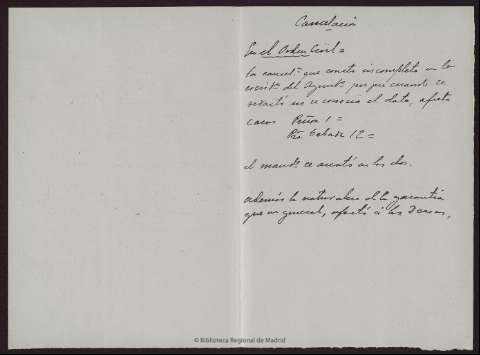 Cancelación
En el Orden Civil =
la cancelⁿ que consta incompleta en la
escritª del Ayuntº porque cuando se
redactó no se conocía el dato, afecta
casas Peñon 1 =
Pza Cebada 12 =
el mandº se anotó en los dos.
además la naturaleza de la garantía
que en general, afectó á las 3 casas,
© Biblioteca Regional de Madrid